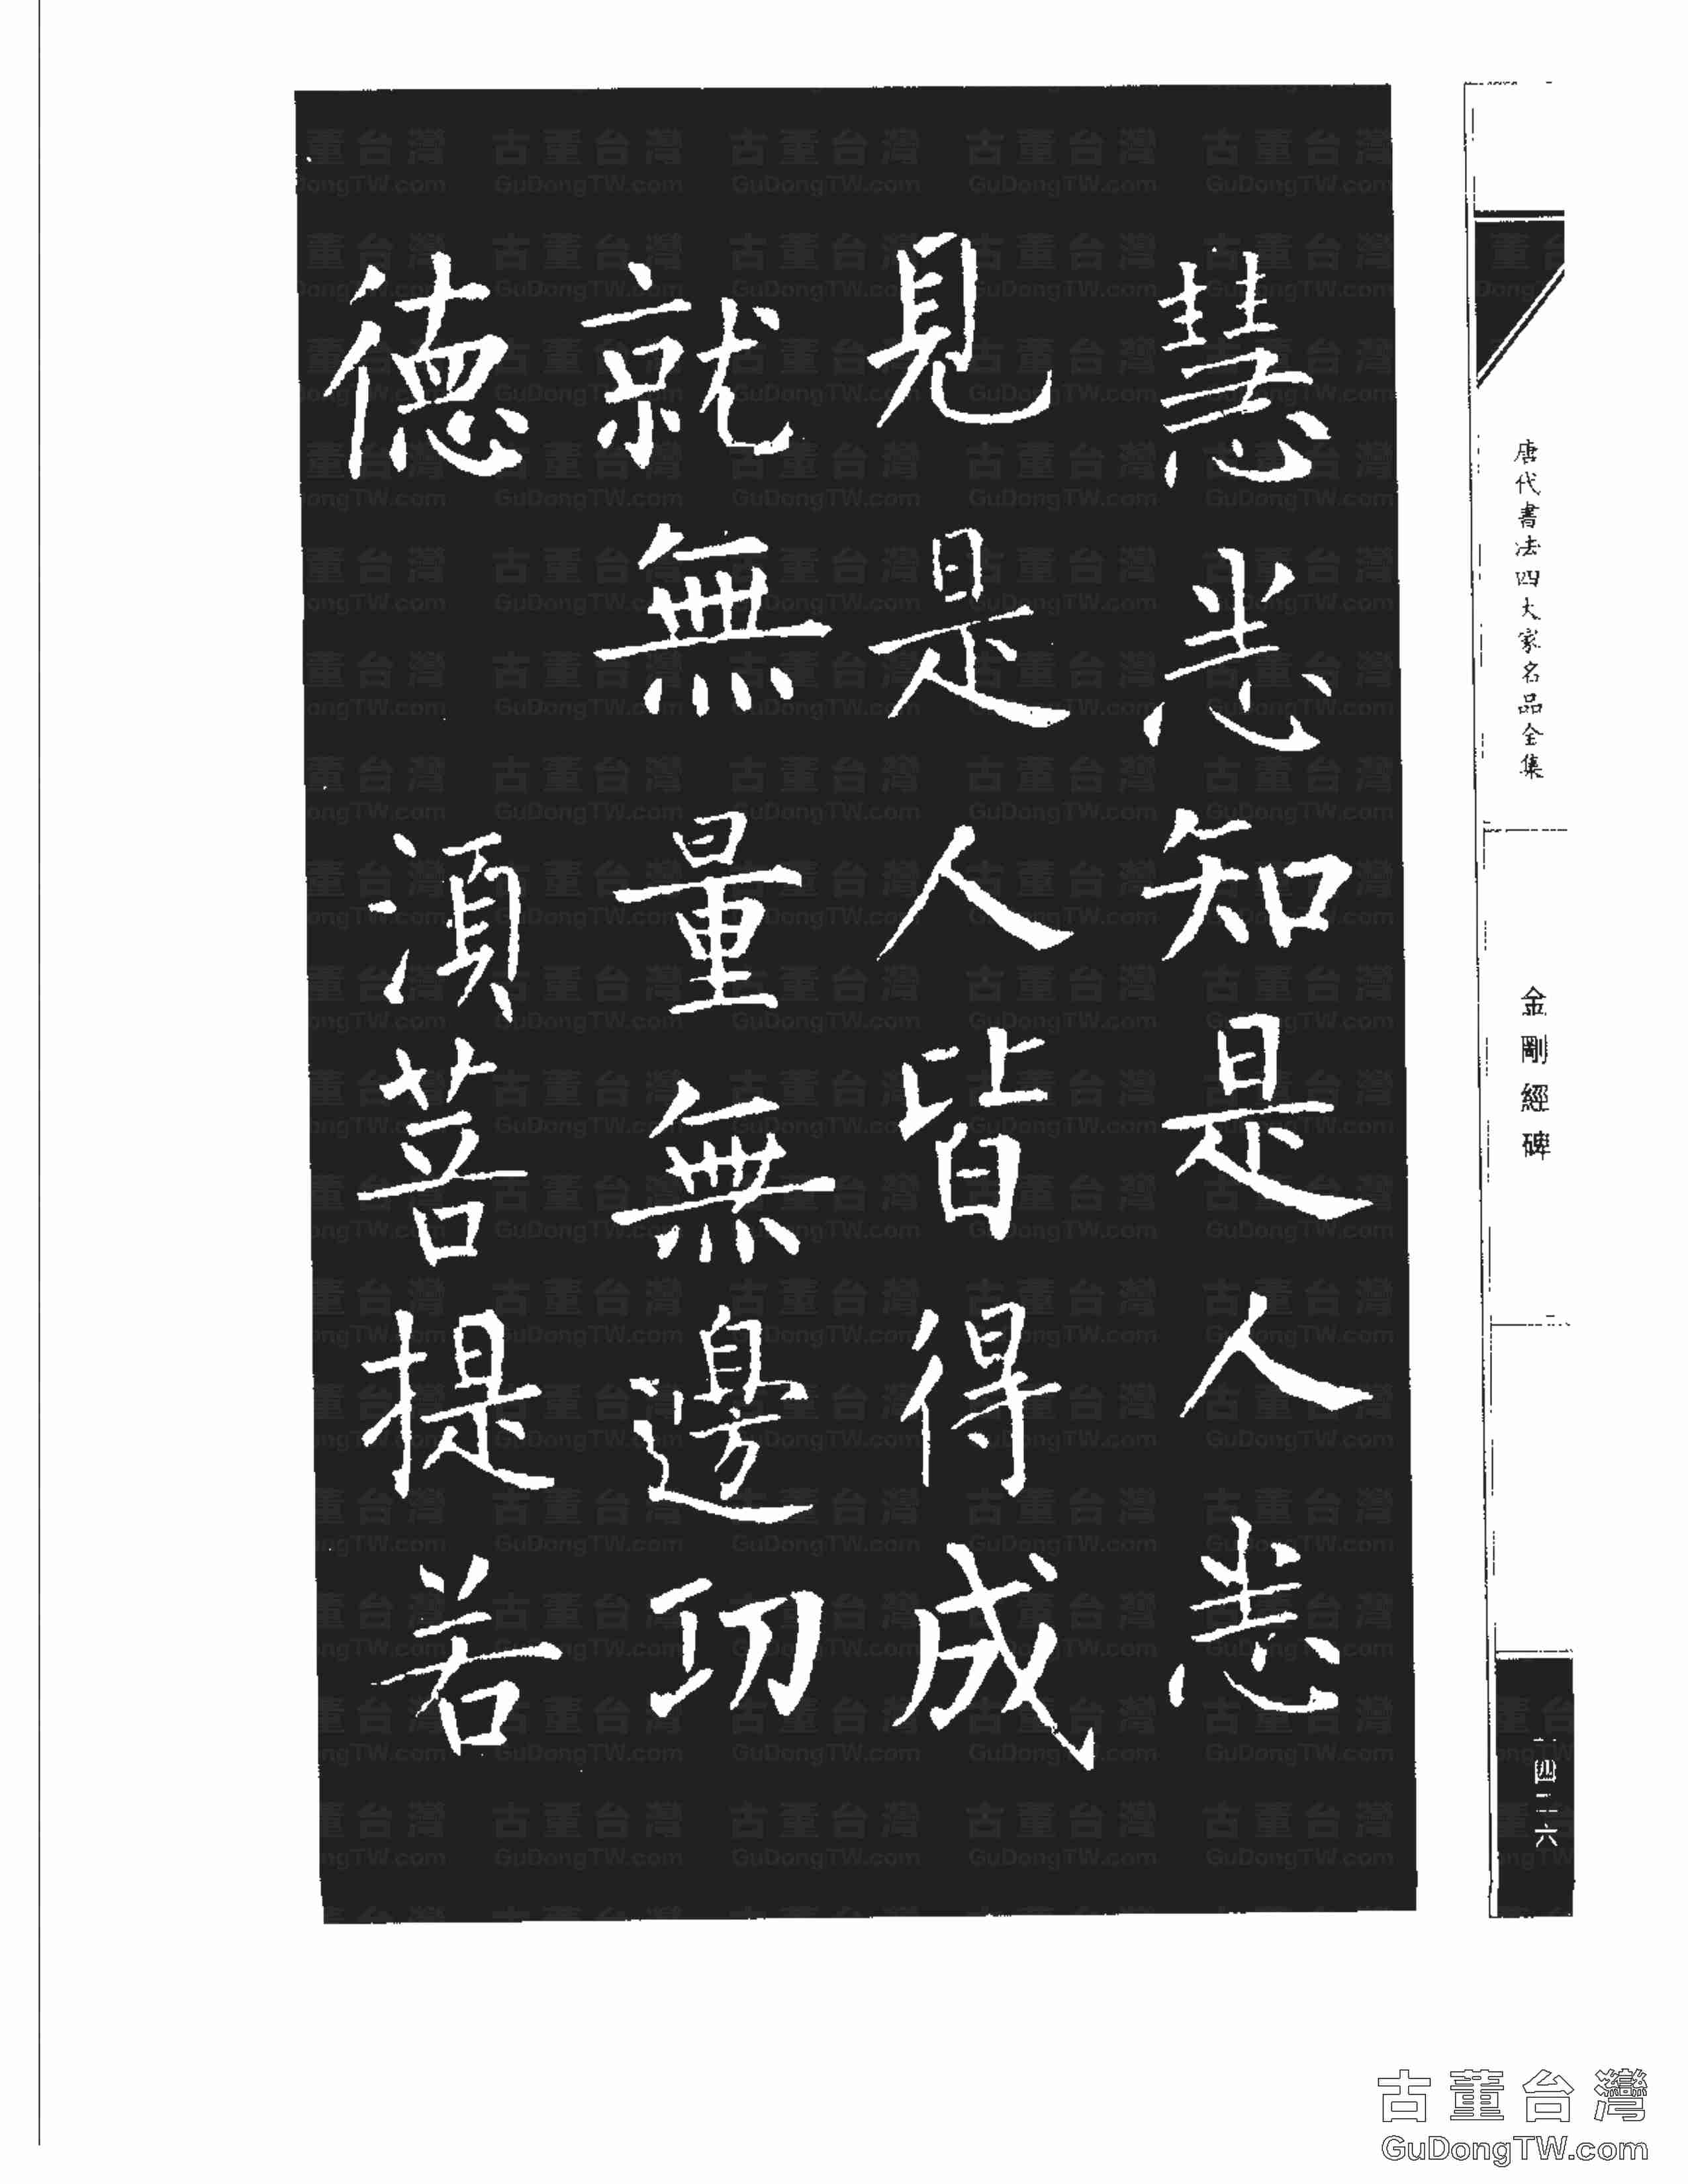 慧悉知是人悉
見是人皆得成
就無量無邊功
德　須菩提若
唐代書法四大家名品全集
金剛經碑
古董台灣
GuDongTW.com